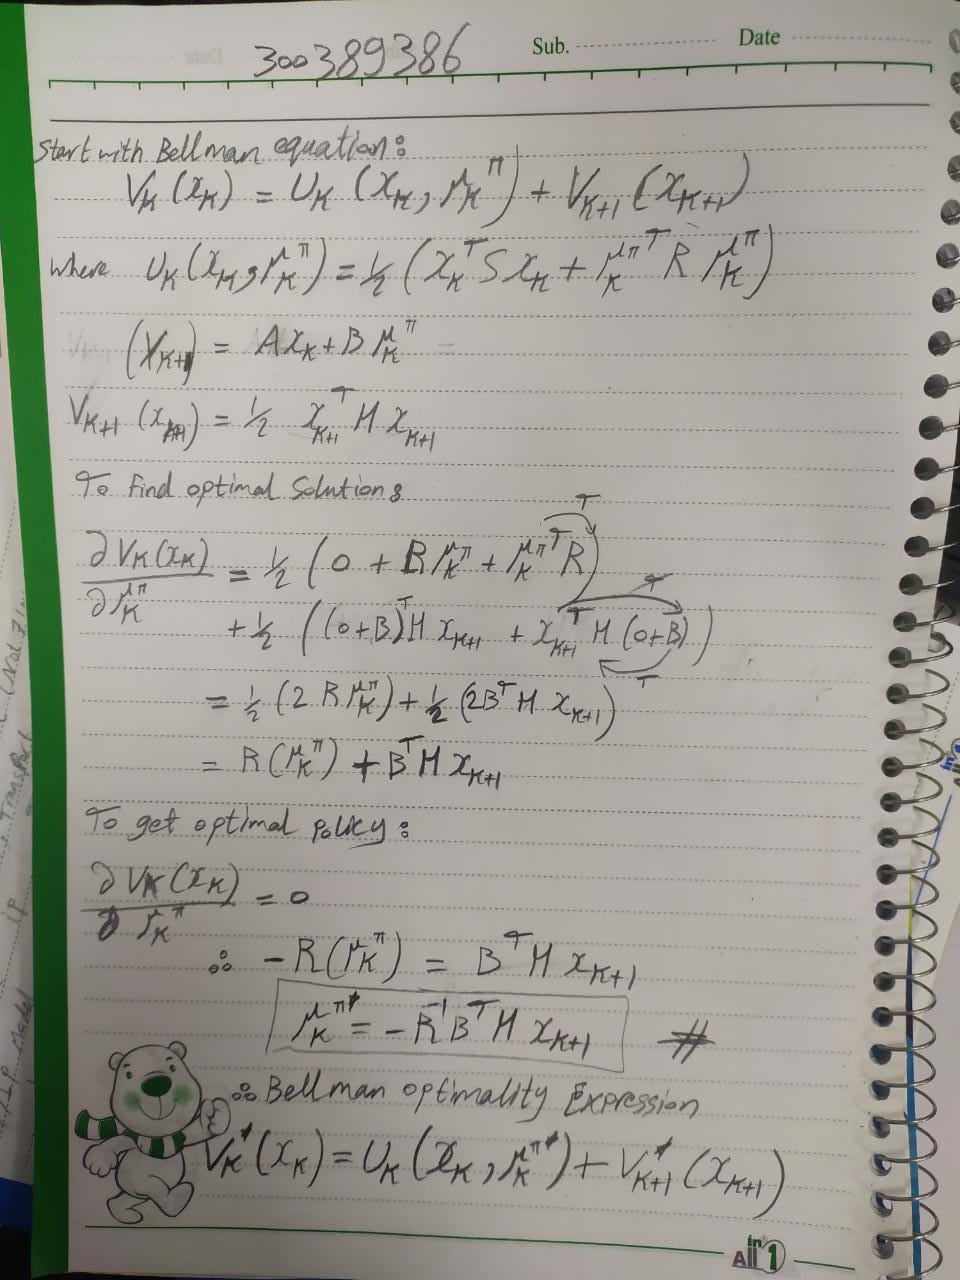 300389386 Sub. Date
Start with Bellman equation:
V_K (x_K) = U_K (x_K, μ_K^π) + V_{K+1} (x_{K+1})
where U_K (x_K, μ_K^π) = 1/2 (x_K^T S x_K + μ_K^{πT} R μ_K^π)
(X_{K+1}) = A x_K + B μ_K^π
V_{K+1} (x_{K+1}) = 1/2 x_{K+1}^T H x_{K+1}
To Find optimal Solution:
∂V_K(x_K)/∂μ_K^π = 1/2 (0 + R μ_K^π + μ_K^{πT} R)^T
+ 1/2 ((0+B)^T H x_{K+1} + x_{K+1}^T H (0+B))
= 1/2 (2 R μ_K^π) + 1/2 (2B^T H x_{K+1})
= R(μ_K^π) + B^T H x_{K+1}
To get optimal policy:
∂V_K(x_K)/∂μ_K^π = 0
∴ - R(μ_K^π) = B^T H x_{K+1}
μ_K^{π*} = - R^{-1} B^T H x_{K+1} #
∴ Bellman optimality Expression
V_K^* (x_K) = U_K (x_K, μ_K^{π*}) + V_{K+1}^* (x_{K+1})
All in 1